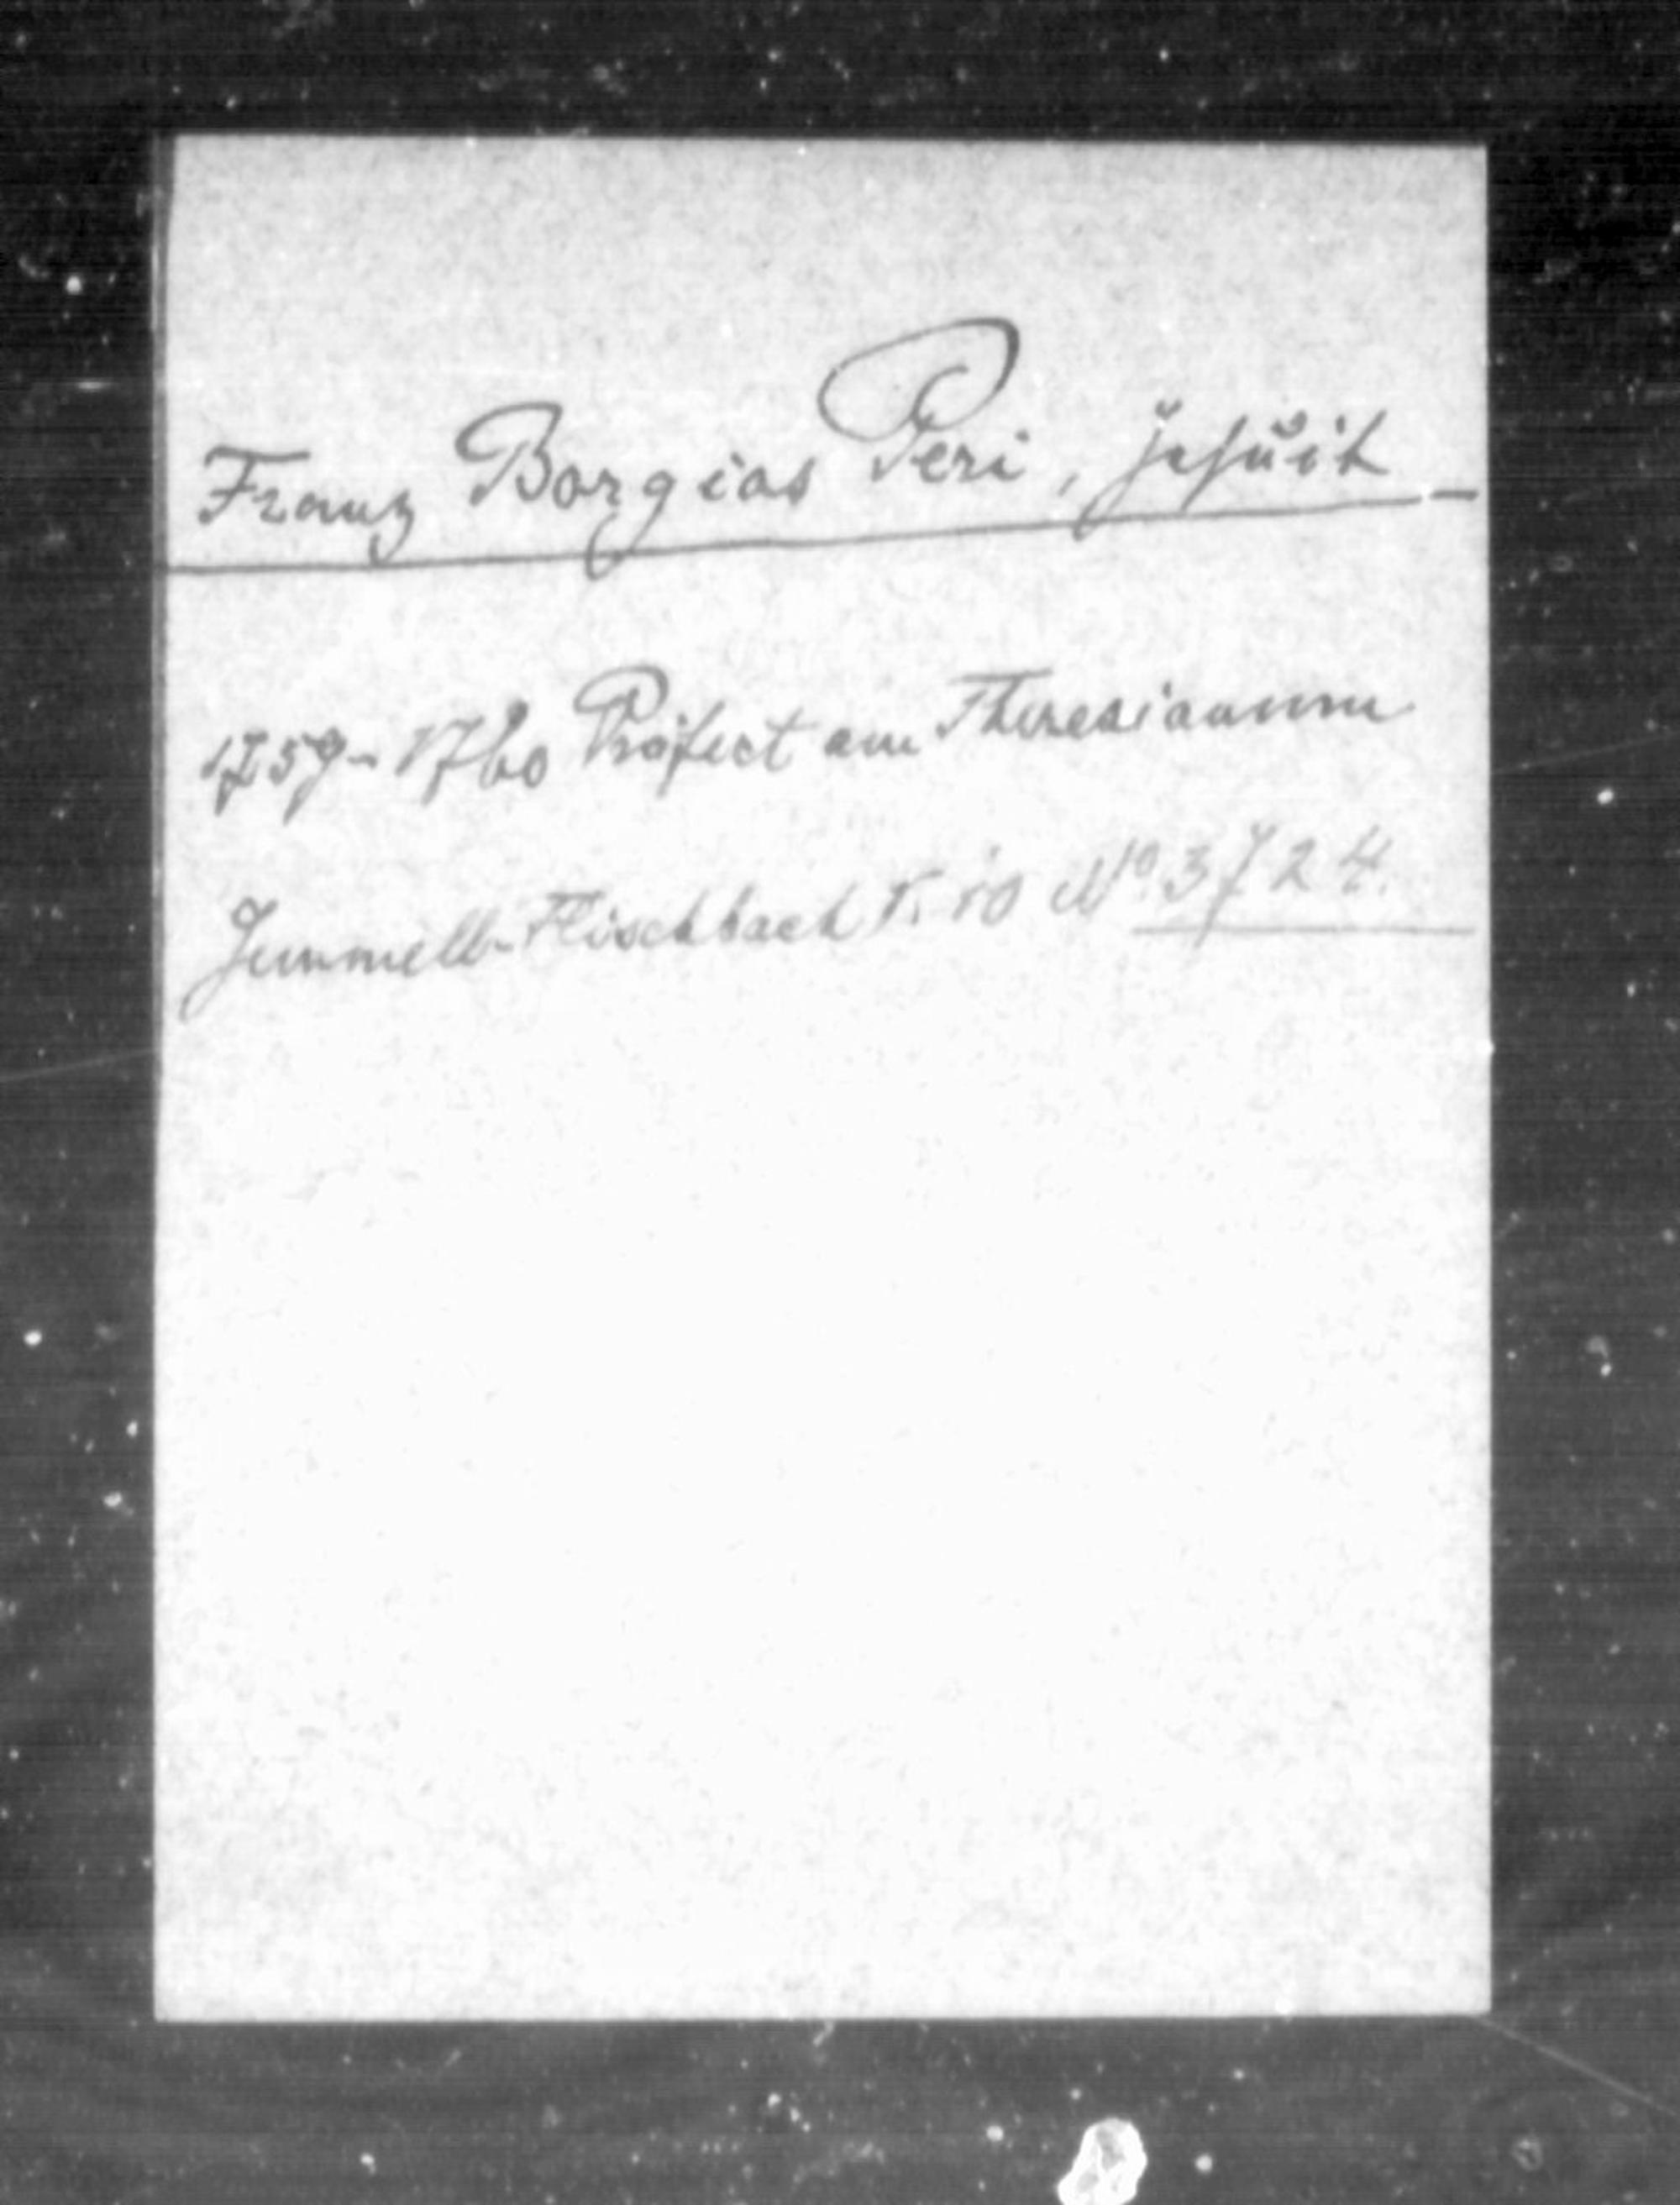 Franz Borgias Peri, Jesuit
1759-1760 Präfect am Theresianum
Gemmell-Flischbach K. 10 No. 3724.